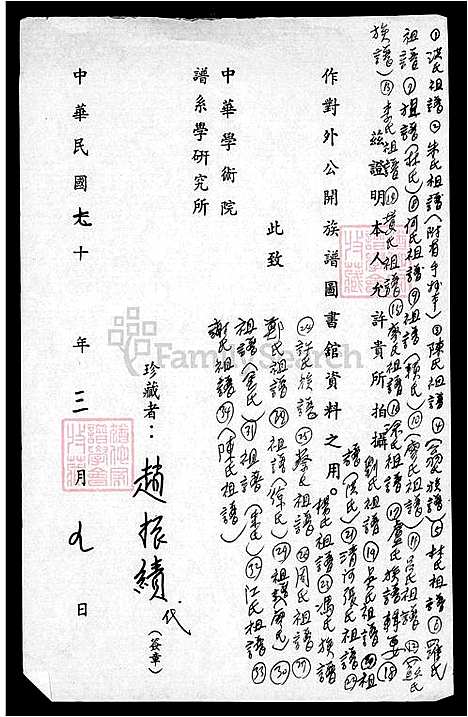 ①洪氏祖譜②朱氏祖譜(附有手抄本)③陳氏祖譜④(翁)氏族譜⑤林氏祖譜⑥羅氏
祖譜⑦祖譜(林氏)⑧何氏祖譜⑨祖譜(賴氏)⑩廖氏祖譜⑪呂氏祖譜⑫
族譜⑬李氏祖譜⑭黃氏祖譜⑮廖氏祖譜⑯徐氏祖譜⑰盧氏族譜輯要⑱
茲證明本人允許貴所拍攝
劉氏祖譜⑲吳氏祖譜⑳祖
譜(洪氏)㉑清河張氏祖譜㉒
作對外公開族譜圖書館資料之用。
楊氏祖譜㉓馮氏族譜
㉔許氏族譜㉕蔡氏祖譜㉖周氏祖譜㉗
此致
鄭氏祖譜㉘祖譜(徐氏)㉙祖譜㉚
祖譜㉛祖譜㉜江氏祖譜㉝
謝氏祖譜㉞(陳氏祖譜)
中華學術院
譜系學研究所
珍藏者：趙振績代(簽章)
中華民國七十年三月九日
FamilySearch